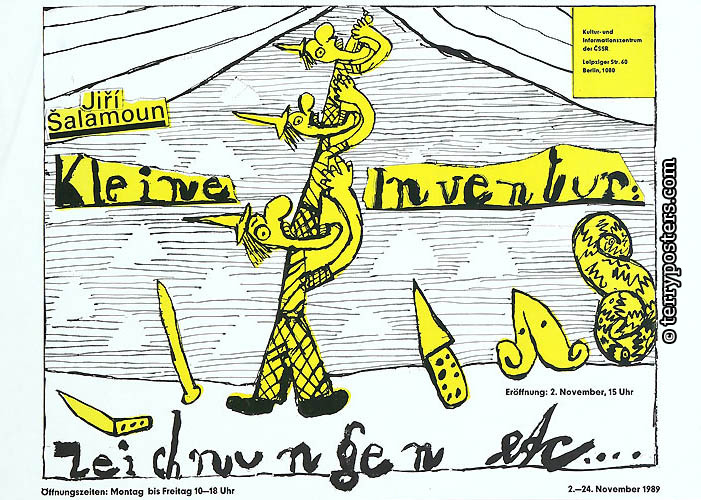 Kultur- und
Informationszentrum
der ČSSR
Leipziger Str. 60
Berlin, 1080
Jiří
Šalamoun
Kleine Inventur:
© terryposters.com
Eröffnung: 2. November, 15 Uhr
zeichnungen etc....
Öffnungszeiten: Montag bis Freitag 10–18 Uhr
2.–24. November 1989